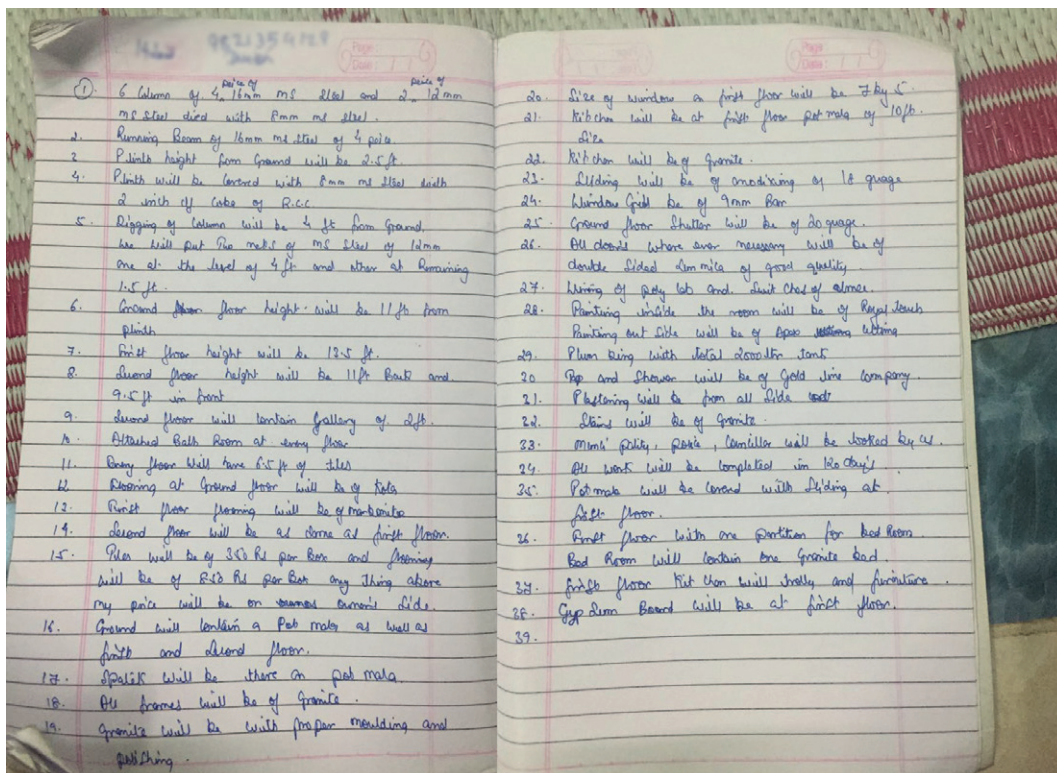 Page :
Date :
1. 6 Column of 4 peice of 16mm ms steel and 2 peice of 12mm
ms steel died with 8mm ms steel.
2. Running Beam of 16mm ms steel of 4 peice.
3 Plinth height from Ground will be 2.5 ft.
4. Plinth will be Covered with 8mm ms steel with
2 inch of R.C.C.
5. Digging of Column will be 4 ft from Ground.
we will put two nets of ms steel of 12mm
one at the level of 4 ft and other at Remaining
1.5 ft.
6. Ground floor height will be 11 ft from
plinth
7. First floor height will be 12.5 ft.
8. Second floor height will be 11ft Back and
9.5 ft in front
9. Second floor will contain Gallery of 2ft.
10. Attached Bath Room at every floor
11. Every floor will have 6.5 ft of tiles
12 Flooring at Ground floor will be of Kota
13. First floor flooring will be of marbonite
14. Second floor will be as same as first floor.
15. Tiles will be of 350 Rs per Box and flooring
will be of 850 Rs per Box any thing above
my price will be on owner's side.
16. Ground will contain a Pot mala as well as
first and second floor.
17. will be there on pot mala
18. All frames will be of Granite.
19. Granite will be with proper moulding and
polishing.
Page :
Date :
20. Size of window on first floor will be 7 by 5
21. Kitchen will be at first floor pot mala of 10ft.
size
22. Kitchen will be of Granite.
23. Sliding will be of anodixing of 18 guage
24. Window Grill be of 9mm Bar
25. Ground floor Shutter will be of 20 guage.
26. All doors where ever necessary will be of
double sided of good quality.
27. Wiring of poly cab and Switches of
28. Painting inside the room will be of Royal touch
Painting out side will be of
29. Plumbing with total 2000ltr tank
30 and Shower will be of Gold line company.
31. Plastering will be from all side
32. Stairs will be of Granite.
33. police, will be looked by us.
34. All work will be completed in 120 days.
35. Potmala will be covered with Sliding at
first floor.
36. First floor with one partition for bed Room.
Bed Room will contain one Granite bed
37. first floor Kitchen will trolly and furniture.
38. Gypsum Board will be at first floor.
39.